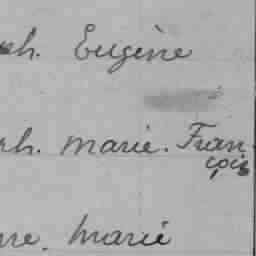 ph. Eugène
ph. Marie. Fran
çois
rre. Marie